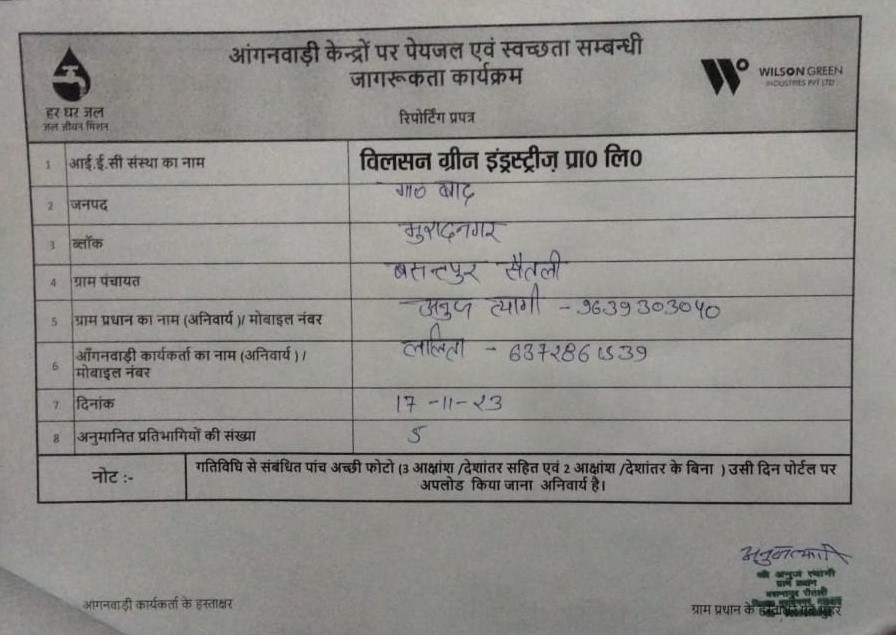 आंगनवाड़ी केन्द्रों पर पेयजल एवं स्वच्छता सम्बन्धी
जागरूकता कार्यक्रम
हर घर जल
जल जीवन मिशन
WILSON GREEN
INDUSTRIES PVT LTD
रिपोर्टिंग प्रपत्र
1 आई.ई.सी संस्था का नाम विलसन ग्रीन इंड्रस्ट्रीज़ प्रा0 लि0
2 जनपद गा० बाद
3 ब्लॉक मुरादनगर
4 ग्राम पंचायत बसन्तपुर सैतली
5 ग्राम प्रधान का नाम (अनिवार्य )/ मोबाइल नंबर अनुज त्यागी - 9639303040
6 आँगनवाड़ी कार्यकर्ता का नाम (अनिवार्य ) /
मोबाइल नंबर ललिता -
7 दिनांक 17-11-23
8 अनुमानित प्रतिभागियों की संख्या 5
नोट :- गतिविधि से संबंधित पांच अच्छी फोटो (3 आक्षांश /देशांतर सहित एवं 2 आक्षांश /देशांतर के बिना ) उसी दिन पोर्टल पर
अपलोड किया जाना अनिवार्य है।
श्री अनुज त्यागी
ग्राम प्रधान
आंगनवाड़ी कार्यकर्ता के हस्ताक्षर
ग्राम प्रधान के